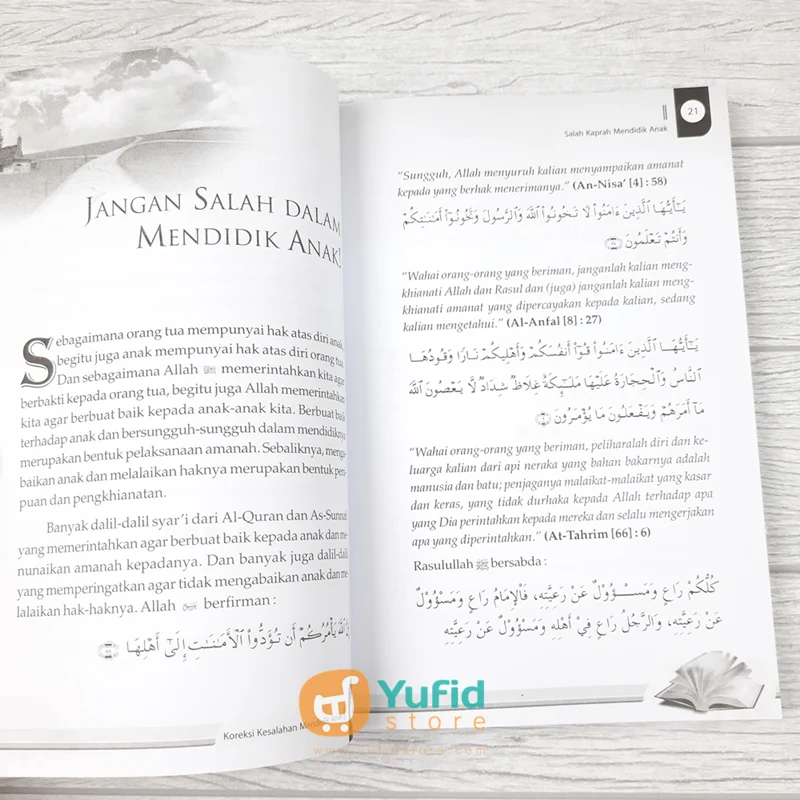 JANGAN SALAH DALAM
MENDIDIK ANAK!
Sebagaimana orang tua mempunyai hak atas diri anak,
begitu juga anak mempunyai hak atas diri orang tua.
Dan sebagaimana Allah ﷻ memerintahkan kita agar
berbakti kepada orang tua, begitu juga Allah memerintahkan
kita agar berbuat baik kepada anak-anak kita. Berbuat baik
terhadap anak dan bersungguh-sungguh dalam mendidiknya
merupakan bentuk pelaksanaan amanah. Sebaliknya, menga-
baikan anak dan melalaikan haknya merupakan bentuk peni-
puan dan pengkhianatan.
Banyak dalil-dalil syar'i dari Al-Quran dan As-Sunnah
yang memerintahkan agar berbuat baik kepada anak dan me-
nunaikan amanah kepadanya. Dan banyak juga dalil-dalil
yang memperingatkan agar tidak mengabaikan anak dan me-
lalaikan hak-haknya. Allah ﷻ berfirman :
إِنَّ ٱللَّهَ يَأْمُرُكُمْ أَن تُؤَدُّوا۟ ٱلْأَمَـٰنَـٰتِ إِلَىٰٓ أَهْلِهَا ﴿٥٨﴾
Koreksi Kesalahan Mendidik Anak
21
Salah Kaprah Mendidik Anak
“Sungguh, Allah menyuruh kalian menyampaikan amanat
kepada yang berhak menerimanya.” (An-Nisa' [4] : 58)
يَـٰٓأَيُّهَا ٱلَّذِينَ ءَامَنُوا۟ لَا تَخُونُوا۟ ٱللَّهَ وَٱلرَّسُولَ وَتَخُونُوٓا۟ أَمَـٰنَـٰتِكُمْ
وَأَنتُمْ تَعْلَمُونَ ﴿٢٧﴾
“Wahai orang-orang yang beriman, janganlah kalian meng-
khianati Allah dan Rasul dan (juga) janganlah kalian meng-
khianati amanat yang dipercayakan kepada kalian, sedang
kalian mengetahui.” (Al-Anfal [8] : 27)
يَـٰٓأَيُّهَا ٱلَّذِينَ ءَامَنُوا۟ قُوٓا۟ أَنفُسَكُمْ وَأَهْلِيكُمْ نَارًا وَقُودُهَا
ٱلنَّاسُ وَٱلْحِجَارَةُ عَلَيْهَا مَلَـٰٓئِكَةٌ غِلَاظٌ شِدَادٌ لَّا يَعْصُونَ ٱللَّهَ
مَآ أَمَرَهُمْ وَيَفْعَلُونَ مَا يُؤْمَرُونَ ﴿٦﴾
“Wahai orang-orang yang beriman, peliharalah diri dan ke-
luarga kalian dari api neraka yang bahan bakarnya adalah
manusia dan batu; penjaganya malaikat-malaikat yang kasar
dan keras, yang tidak durhaka kepada Allah terhadap apa
yang Dia perintahkan kepada mereka dan selalu mengerjakan
apa yang diperintahkan.” (At-Tahrim [66] : 6)
Rasulullah ﷺ bersabda :
كُلُّكُمْ رَاعٍ وَمَسْؤُوْلٌ عَنْ رَعِيَّتِهِ، فَالْإِمَامُ رَاعٍ وَمَسْؤُوْلٌ
عَنْ رَعِيَّتِهِ، وَالرَّجُلُ رَاعٍ فِيْ أَهْلِهِ وَمَسْؤُوْلٌ عَنْ رَعِيَّتِهِ
Yufid
store
www.yufidstore.com